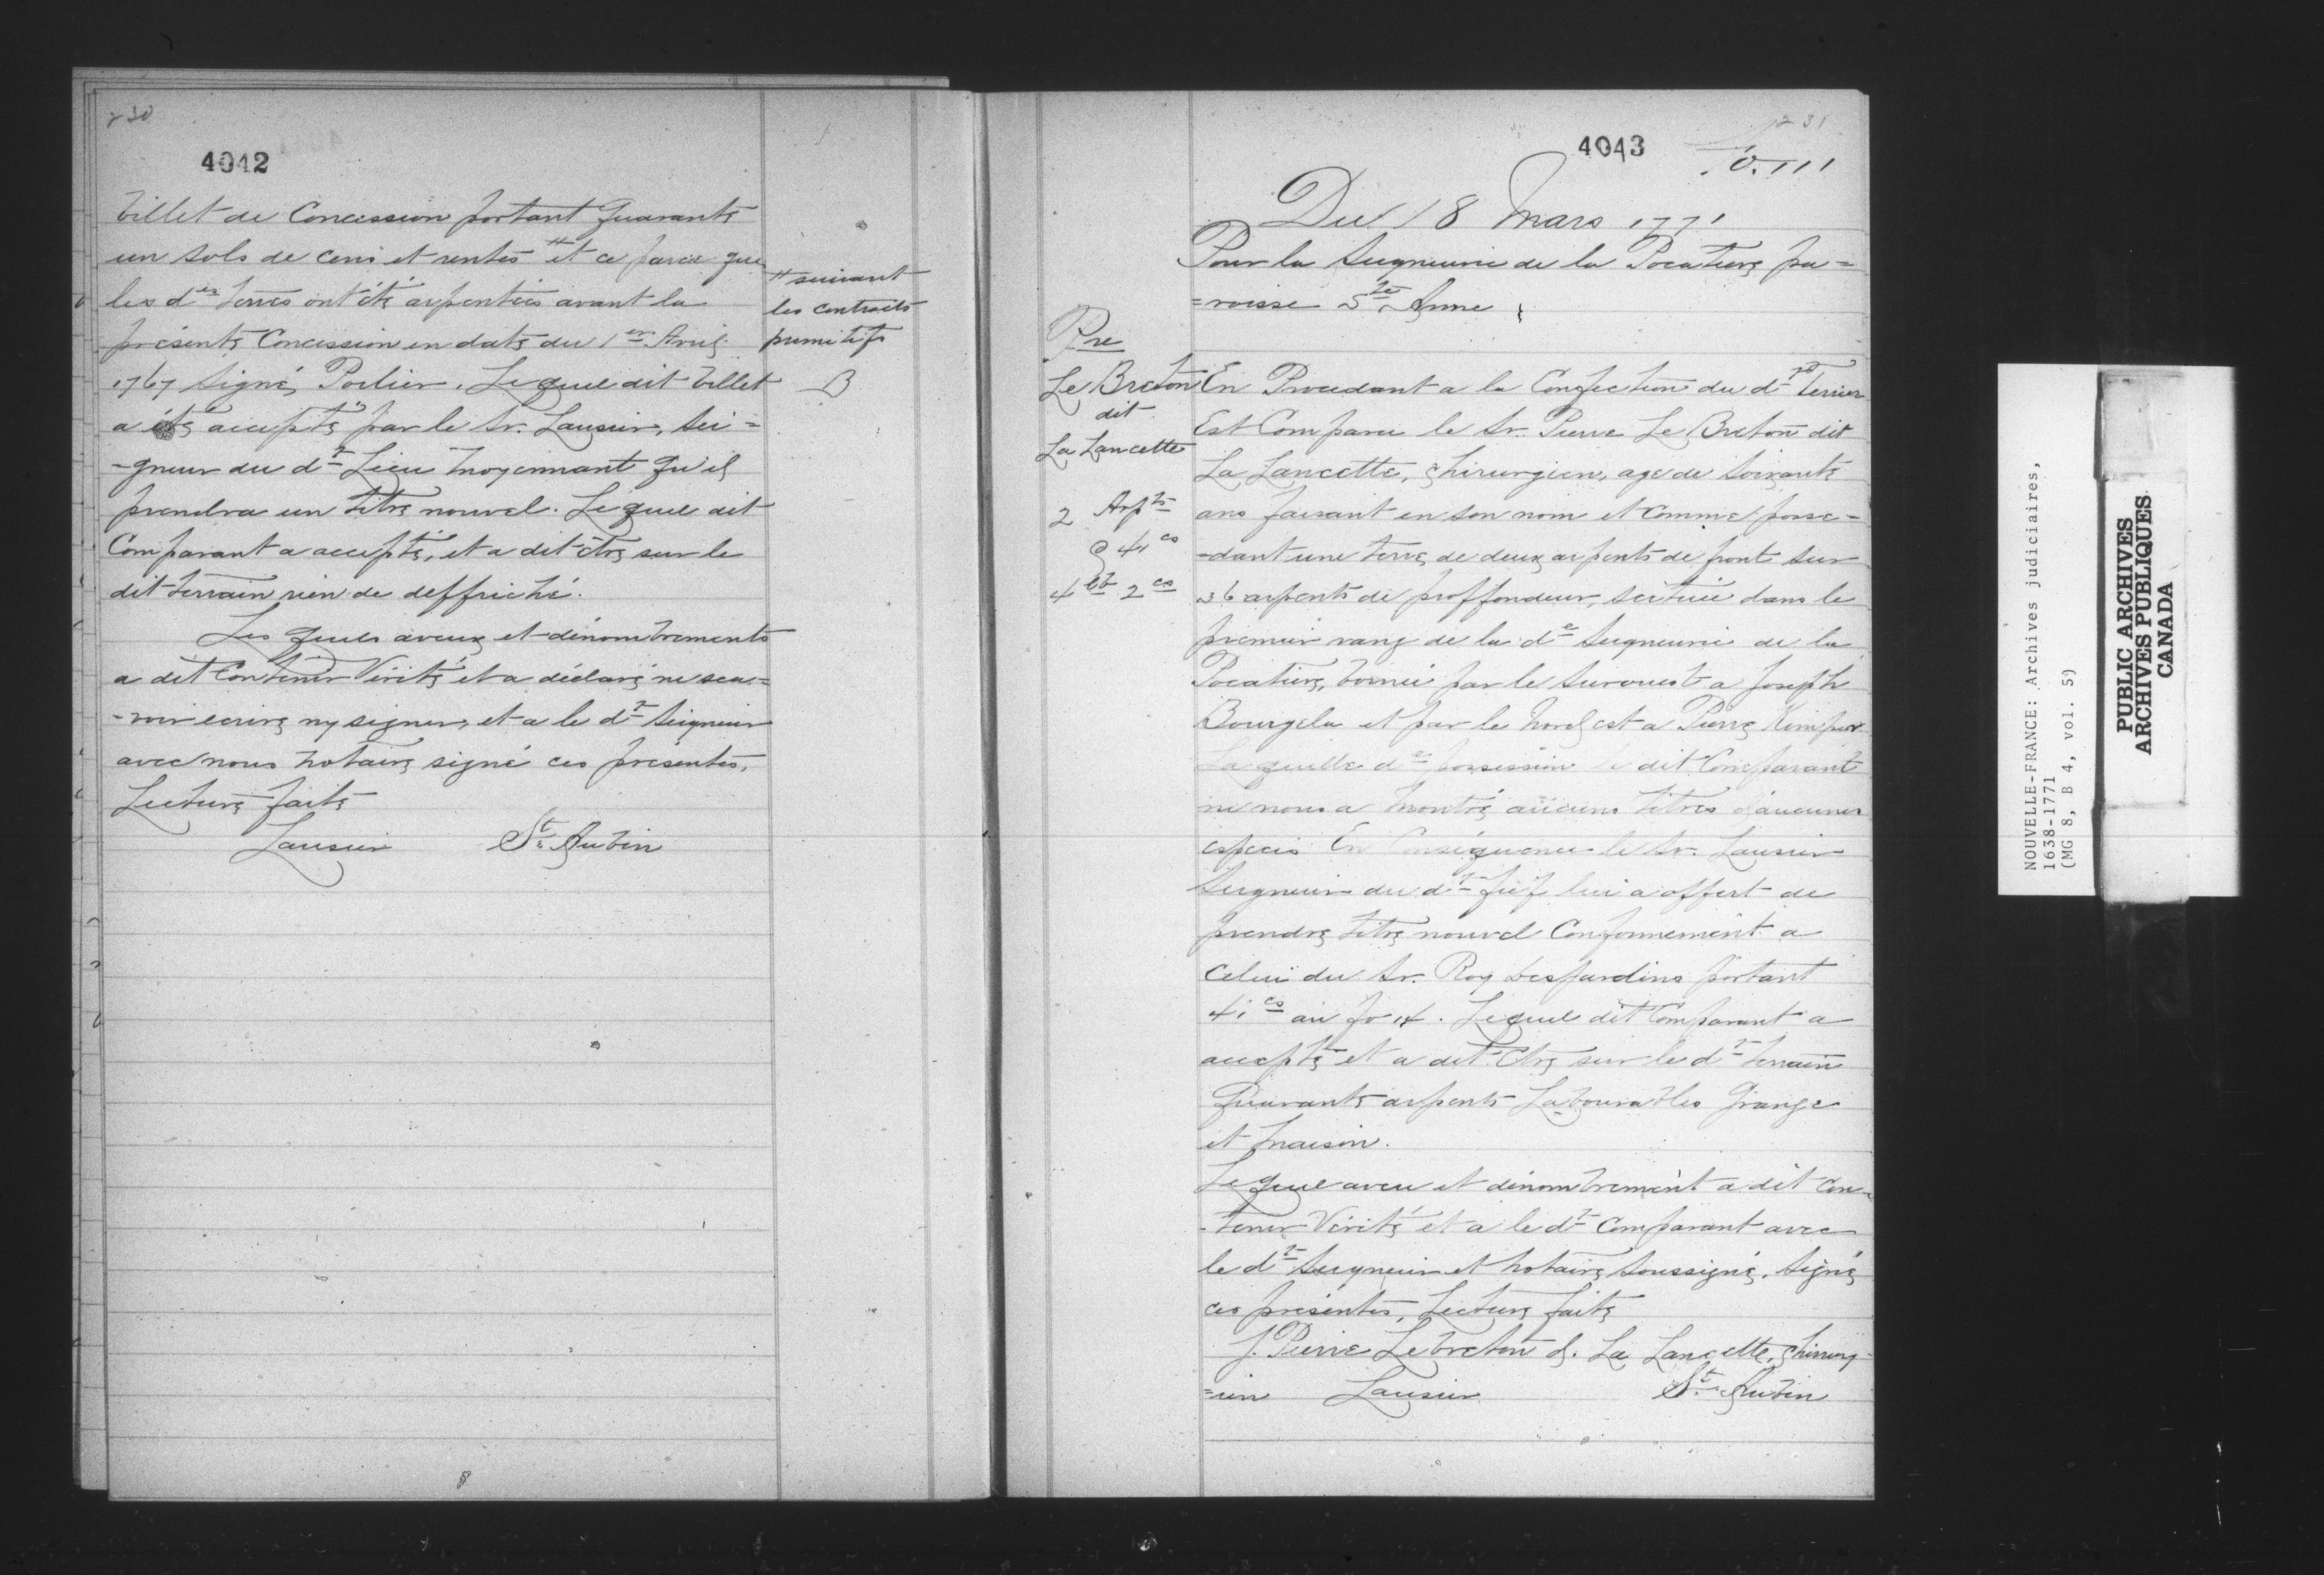 230
4042
billet de Concession portant quarante
un sols de cens et rentes # et ce parce que
les d.es terres ont été arpentées avant la
présente Concession en date du 1er Avril
1767 signé, Porlier. Le quel dit billet
a été accepté par le Sr. Lausier, sei=
-gneur du dt Lieu moyennant qu'il
prendra un titre nouvel. Le quel dit
Comparant a accepté, et a dit être sur le
dit terrain rien de deffriché.
Les quels aveux et dénombrements
a dit Contenir Vérité et a déclaré ne sca=
-voir ecrire ny signer, et a le dt Seigneur
avec nous notaire signé ces présentes,
Lecture faite
Lausier St. Aubin
# suivant
les contracts
primitifs
B
8
231
4043
fo. 111
Du 18 Mars 1771
Pour la Seigneurie de la Pocatiere pa=
=roisse Ste Anne
Pre
Le Breton
dit
La Lancette
2 Arpts
@ 41 cs
4 lt 2 cs
En Procedant a la Confection du dt Terrier
Est Comparu le Sr. Pierre Le Breton dit
La Lancette, Chirurgien, age de soixante
ans faisant en son nom et comme posse-
-dant une terre de deux arpents de front sur
36 arpents de proffondeur, scituée dans le
premier rang de la de Seigneurie de la
Pocatiere, bornée par le surouest a Joseph
Bourgela et par le Nord est a Pierre Kimper
Laquelle de possession le dit Comparant
ne nous a montré aucuns titres d'aucunes
especes En Conséquence le Sr. Lausier
Seigneur du dt fief lui a offert de
prendre titre nouvel Conformement a
celui du Sr. Roy Desjardins portant
41 cs au fo 14. Lequel dit Comparant a
accepté et a dit Etre sur le dt terrain
Quarante arpents Labourables Grange
et maison.
Le quel aveu et dénombrement a dit Con-
-tenir Vérité et a le dt Comparant avec
le dt Seigneur et Notaire Soussigné, Signé
ces présentes, Lecture faite
J. Pierre Lebreton d. La Lancette, Chirurg-
=ien Lausier St. Aubin
NOUVELLE-FRANCE: Archives judiciaires,
1638-1771
(MG 8, B 4, vol. 5)
PUBLIC ARCHIVES
ARCHIVES PUBLIQUES
CANADA